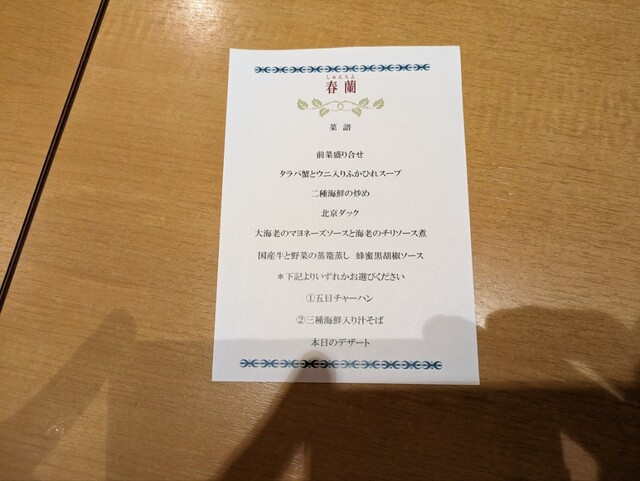 しゅんらん
春蘭
菜譜
前菜盛り合せ
タラバ蟹とウニ入りふかひれスープ
二種海鮮の炒め
北京ダック
大海老のマヨネーズソースと海老のチリソース煮
国産牛と野菜の蒸篭蒸し 蜂蜜黒胡椒ソース
＊下記よりいずれかお選びください
①五目チャーハン
②三種海鮮入り汁そば
本日のデザート